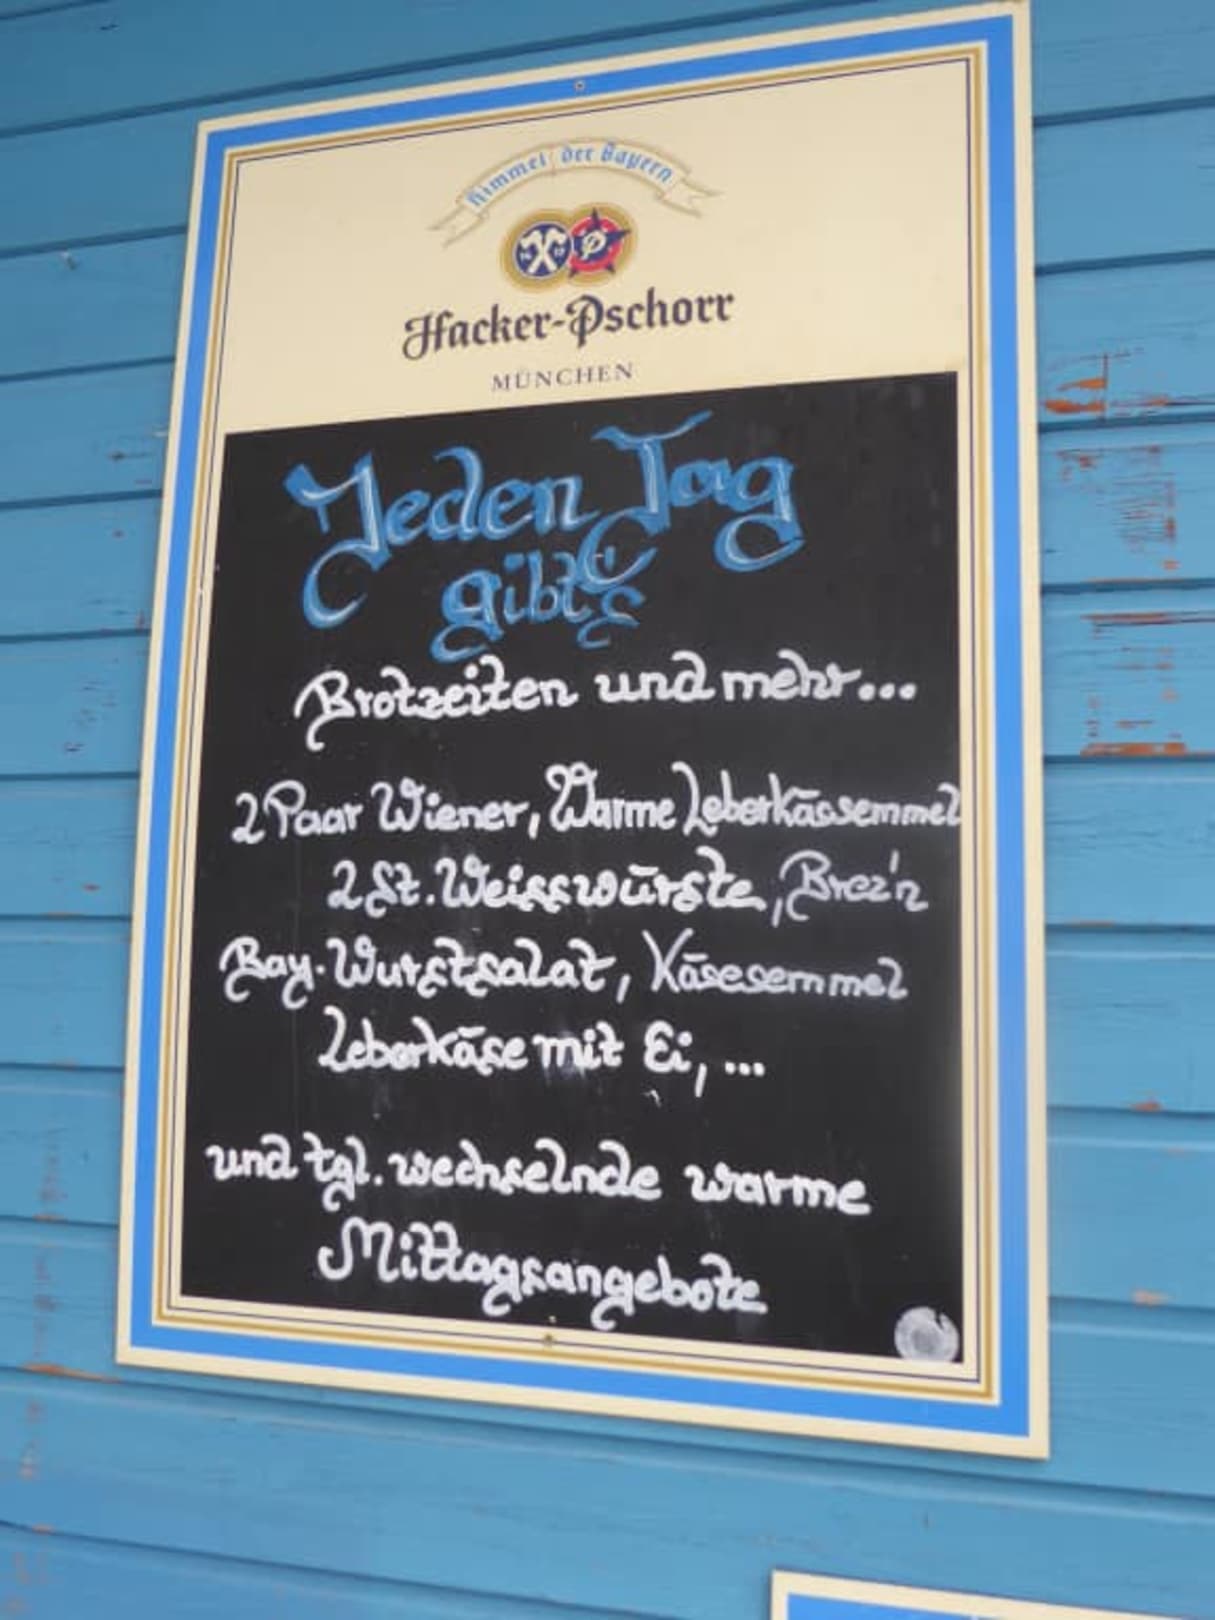 Himmel der Bayern
Hacker-Pschorr
MÜNCHEN
Jeden Tag
gibts
Brotzeiten und mehr...
2 Paar Wiener, Warme Leberkässemmel
2 St. Weisswürste, Brez'n
Bay. Wurstsalat, Käsesemmel
Leberkäse mit Ei, ...
und tgl. wechselnde warme
Mittagsangebote